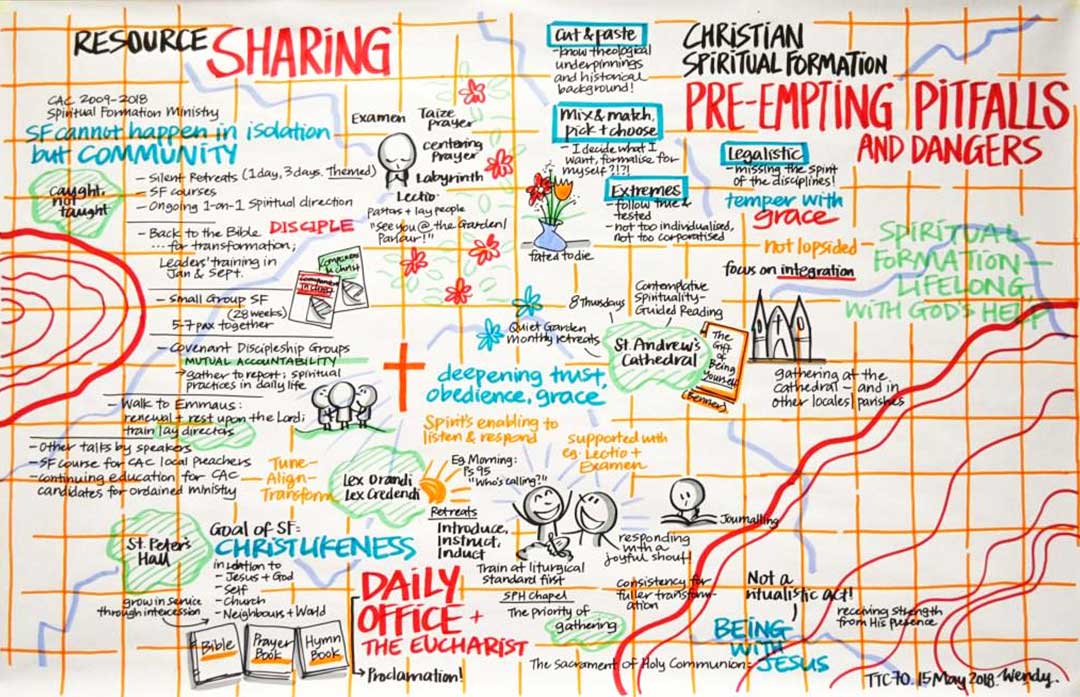 RESOURCE SHARING
CAC 2009-2018
Spiritual Formation Ministry
SF cannot happen in isolation
but COMMUNITY
caught,
not
taught
- Silent Retreats (1 day, 3 days, Themed)
- SF courses
- Ongoing 1-on-1 Spiritual direction
- Back to the Bible DISCIPLE
.... for transformation;
Leaders' training in
Jan & Sept.
- Small Group SF
(28 weeks)
5-7 pax together
- Covenant Discipleship Groups
MUTUAL ACCOUNTABILITY
→ gather to report; spiritual
practices in daily life
- Walk to Emmaus:
renewal + rest upon the Lord;
train lay directors
- Other talks by speakers
- SF course for CAC local preachers
- continuing education for CAC
candidates for ordained ministry
Examen
Taize
prayer
centering
Prayer
Labyrinth
Lectio
Pastors + lay people
"See you @ the Garden/
Parlour!"
Companions
in Christ
Cut & paste
- know theological
underpinnings
and historical
background!
Mix & match,
pick + choose
- I decide what I
want, formalise for
myself?!?!
Extremes
- follow true &
tested
- not too individualised,
not too corporatised
fated to die
CHRISTIAN
SPIRITUAL FORMATION
PRE-EMPTING PITFALLS
AND DANGERS
Legalistic
- missing the spirit
of the disciplines!
temper with
grace
not lopsided
focus on integration
SPIRITUAL
FORMATION -
LIFELONG,
WITH GOD'S HELP
8 Thursdays
Contemplative
Spirituality-
Guided Reading
Quiet Garden
monthly retreats
St. Andrew's
Cathedral
The
Gift
of
Being
Yourself
(Benner)
gathering at the
cathedral - and in
other locales/parishes
deepening trust,
obedience, grace
Spirit's enabling to
listen & respond
supported with
eg. Lectio +
Examen
Tune-
Align-
Transform
Lex Orandi
Lex Credendi
Eg Morning:
Ps 95
"Who's calling?"
Retreats
Introduce,
Instruct,
Induct
Train at liturgical
standard first
Journalling
responding
with a
joyful shout!
St. Peter's
Hall
Goal of SF:
CHRISTLIKENESS
in relation to
- Jesus + God
- Self
- Church
- Neighbours + World
grow in service
through intercession
Bible
Prayer
Book
Hymn
Book
DAILY
OFFICE +
THE EUCHARIST
Proclamation!
SPH CHAPEL
The priority of
gathering
consistency for
fuller transform-
ation
Not a
ritualistic act!
receiving strength
from His presence
The Sacrament of Holy Communion-
BEING
WITH
JESUS
TTC-70. 15 May 2018. Wendy.